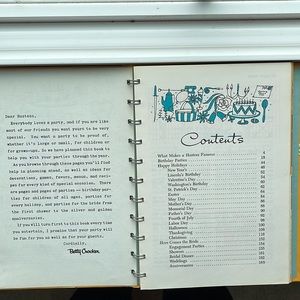 Dear Hostess,
Everybody loves a party, and if you are like
most of our friends you want yours to be very
special. You want a party to be proud of,
whether it's large or small, for children or
for grown-ups. So we have planned this book to
help you with your parties through the year.
As you browse through these pages you'll find
help in planning ahead, as well as ideas for
decorations, games, favors, menus, and recipes
for every kind of special occasion. There
are pages and pages — birthday parties
for children of all ages, parties for
every holiday, and parties for the bride from
the first shower to the silver and golden
anniversaries.
If you will turn first to this book every time
you entertain, I promise that your party will
be fun for you as well as for your guests.
Cordially,
Betty Crocker
Contents
What Makes a Hostess Famous 4
Birthday Parties
Happy Holidays
New Year's
Lincoln's Birthday
Valentine's Day
Washington's Birthday
St. Patrick's Day
Easter
May Day
Mother's Day
Memorial Day
Father's Day
Fourth of July
Labor Day
Halloween
Thanksgiving
Christmas
Here Comes the Bride
Engagement Parties
Showers
Bridal Dinner
Weddings
Anniversaries